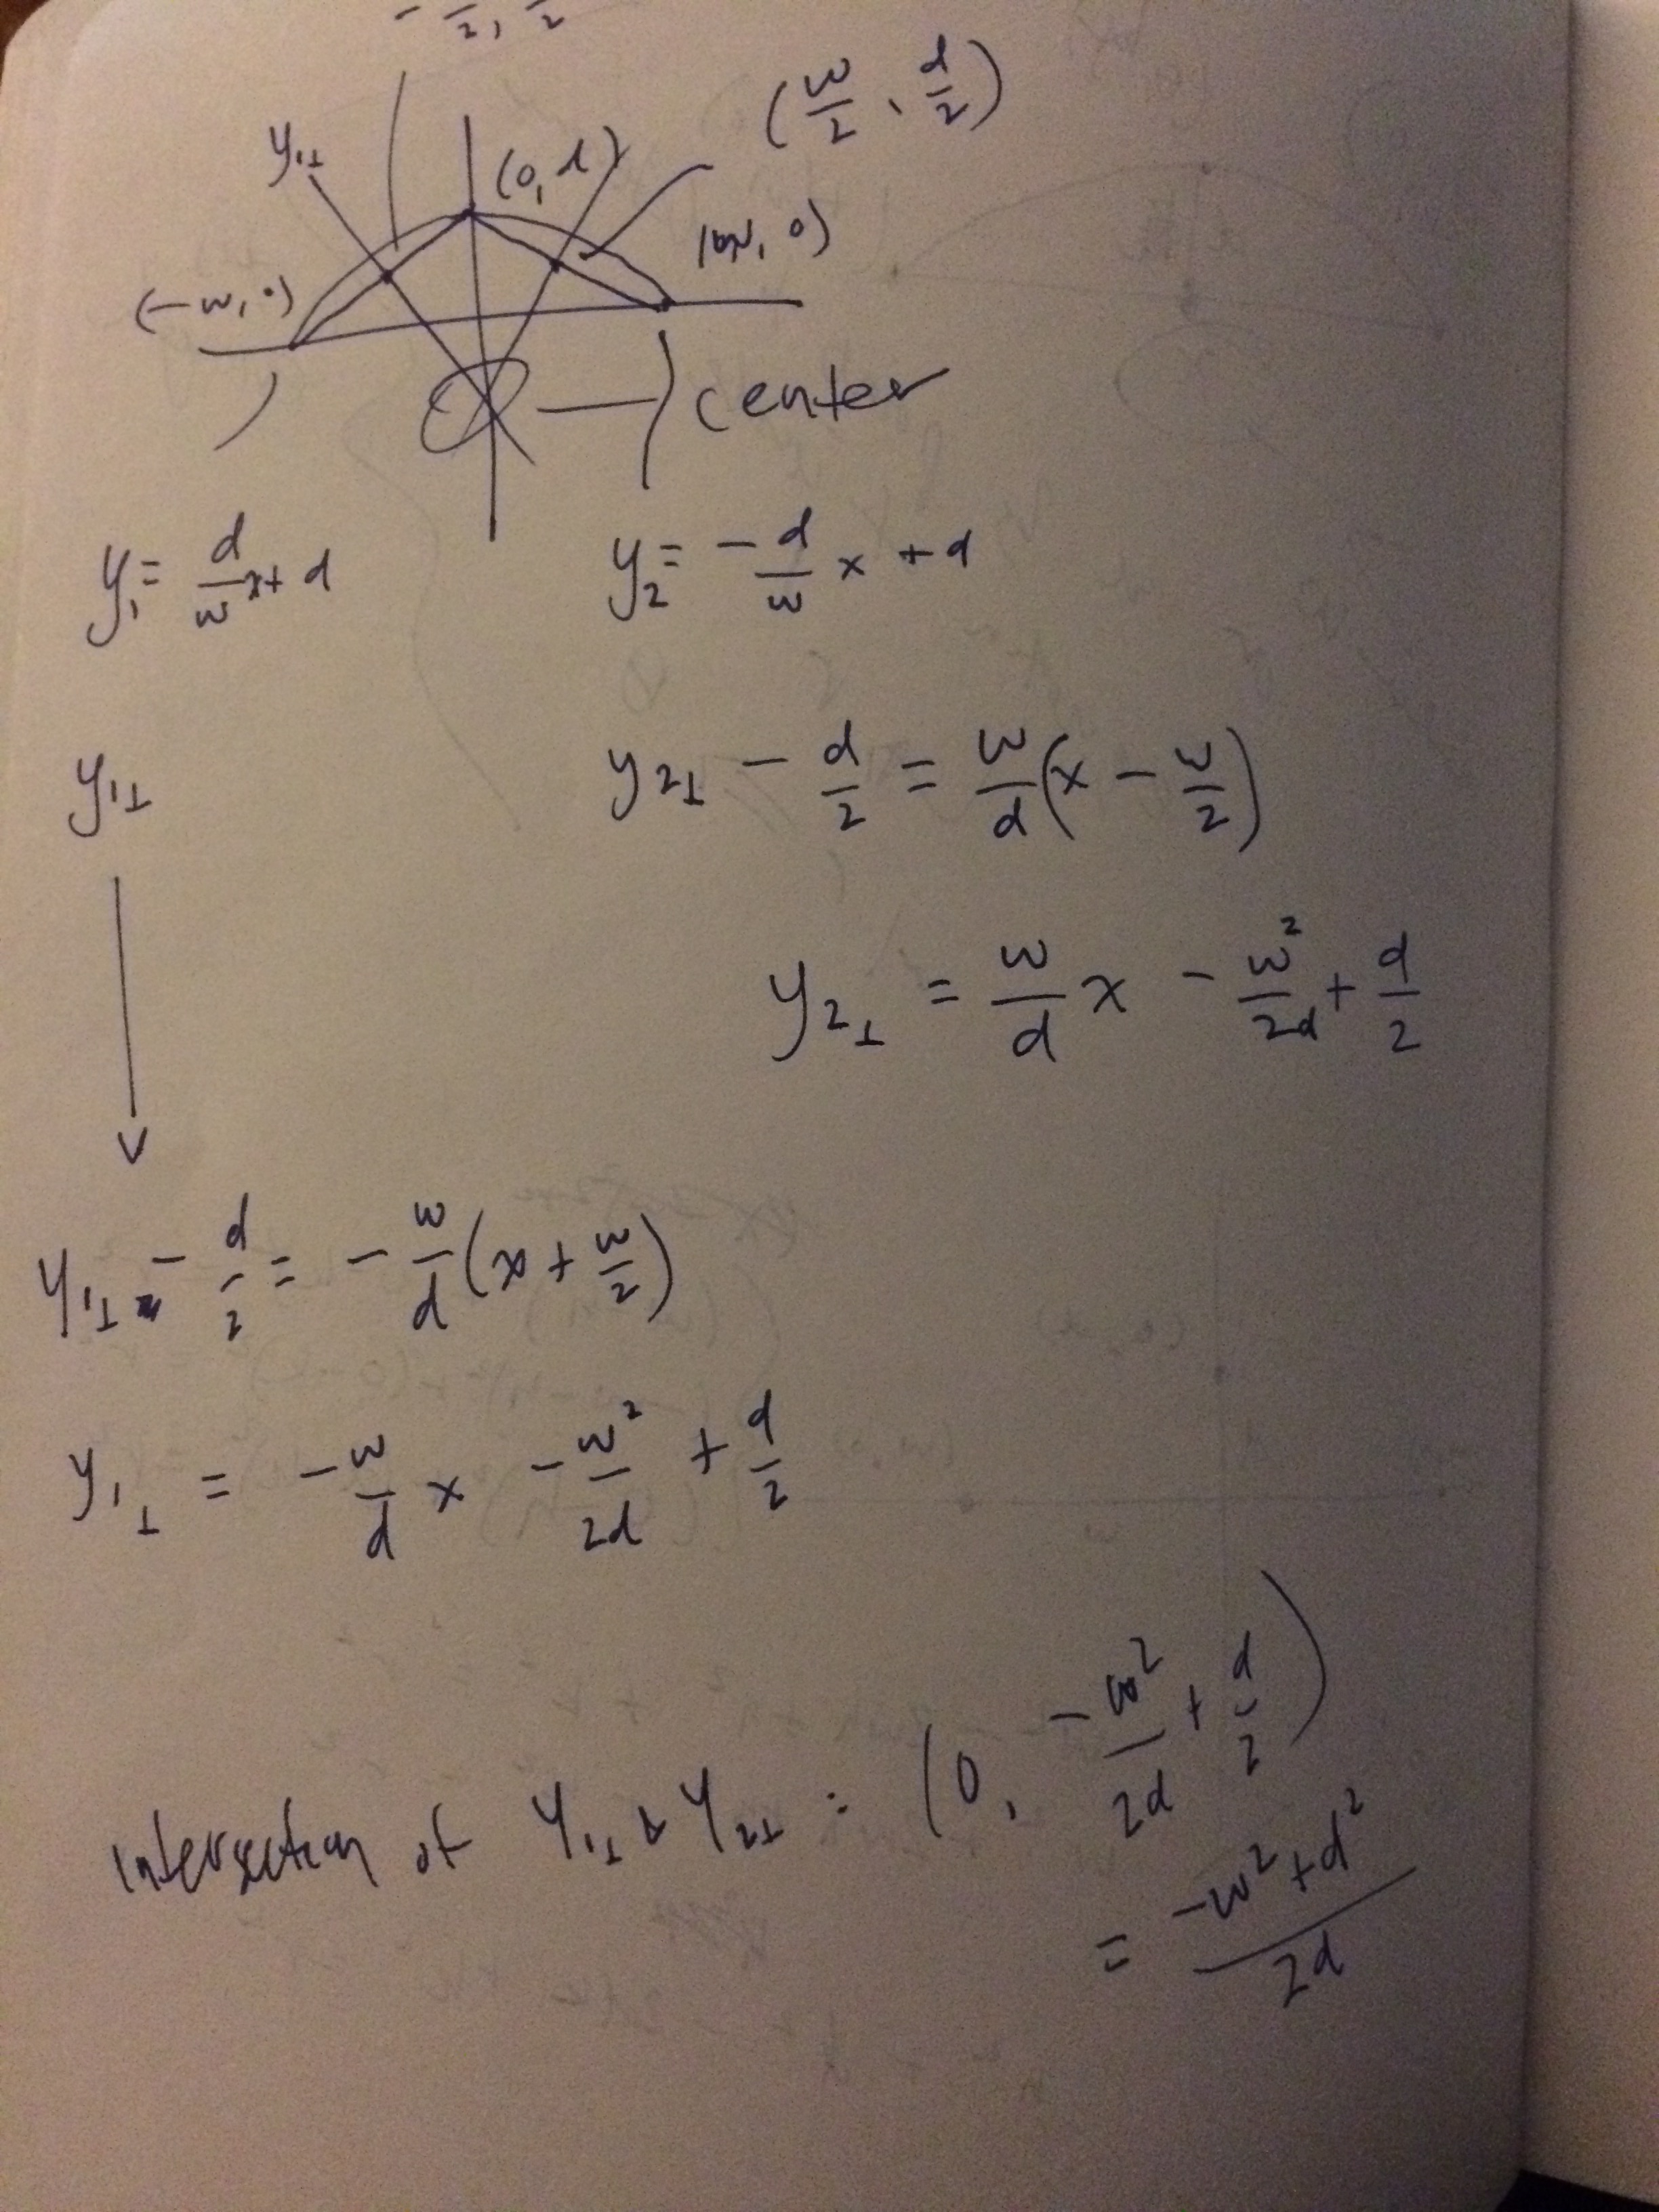 - /2, /2
(w/2, d/2)
y₁⊥
(0, d)
(w, 0)
(-w, 0)
center
y₁ = d/w x + d
y₂ = - d/w x + d
y₁⊥
y₂⊥ - d/2 = w/d (x - w/2)
y₂⊥ = w/d x - w²/2d + d/2
y₁⊥ - d/2 = - w/d (x + w/2)
y₁⊥ = - w/d x - w²/2d + d/2
intersection of y₁⊥ & y₂⊥ : (0, - w²/2d + d/2)
= -w² + d² / 2d